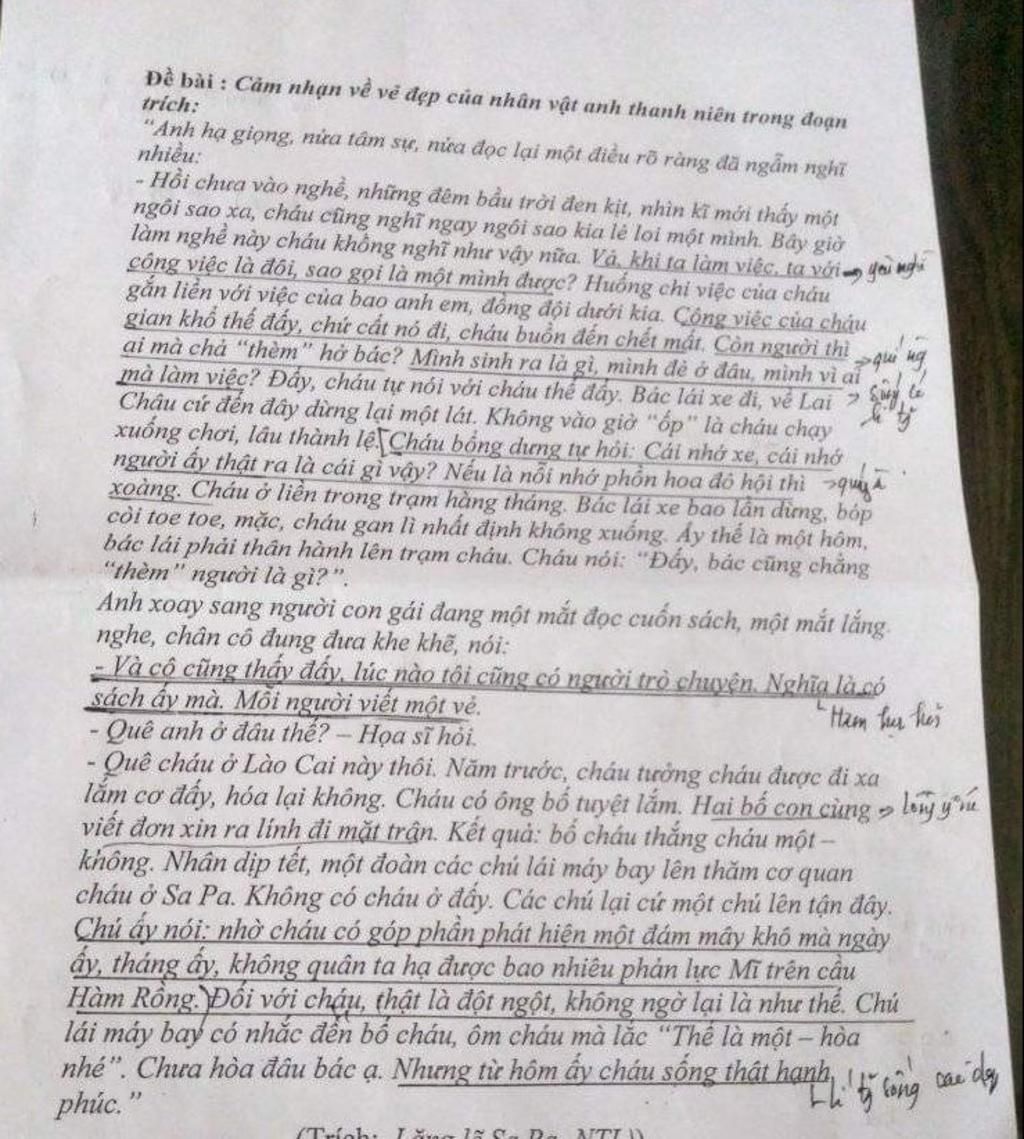 Đề bài : Cảm nhận về vẻ đẹp của nhân vật anh thanh niên trong đoạn
trích:
"Anh hạ giọng, nửa tâm sự, nửa đọc lại một điều rõ ràng đã ngẫm nghĩ
nhiều:
- Hồi chưa vào nghề, những đêm bầu trời đen kịt, nhìn kĩ mới thấy một
ngôi sao xa, cháu cũng nghĩ ngay ngôi sao kia lẻ loi một mình. Bây giờ
làm nghề này cháu không nghĩ như vậy nữa. Vả, khi ta làm việc, ta với
công việc là đôi, sao gọi là một mình được? Huống chi việc của cháu
gắn liền với việc của bao anh em, đồng đội dưới kia. Công việc của cháu
gian khổ thế đấy, chứ cất nó đi, cháu buồn đến chết mất. Còn người thì
ai mà chả "thèm" hở bác? Mình sinh ra là gì, mình đẻ ở đâu, mình vì ai
mà làm việc? Đấy, cháu tự nói với cháu thế đấy. Bác lái xe đi, về Lai
Châu cứ đến đây dừng lại một lát. Không vào giờ "ốp" là cháu chạy
xuống chơi, lâu thành lệ. Cháu bỗng dưng tự hỏi: Cái nhớ xe, cái nhớ
người ấy thật ra là cái gì vậy? Nếu là nỗi nhớ phồn hoa đô hội thì
xoàng. Cháu ở liền trong trạm hàng tháng. Bác lái xe bao lần dừng, bóp
còi toe toe, mặc, cháu gan lì nhất định không xuống. Ấy thế là một hôm,
bác lái phải thân hành lên trạm cháu. Cháu nói: "Đấy, bác cũng chẳng
"thèm" người là gì?".
Anh xoay sang người con gái đang một mắt đọc cuốn sách, một mắt lắng
nghe, chân cô đung đưa khe khẽ, nói:
- Và cô cũng thấy đấy, lúc nào tôi cũng có người trò chuyện. Nghĩa là có
sách ấy mà. Mỗi người viết một vẻ.
Ham học hỏi
- Quê anh ở đâu thế? – Họa sĩ hỏi.
- Quê cháu ở Lào Cai này thôi. Năm trước, cháu tưởng cháu được đi xa
lắm cơ đấy, hóa lại không. Cháu có ông bố tuyệt lắm. Hai bố con cùng
viết đơn xin ra lính đi mặt trận. Kết quả: bố cháu thắng cháu một –
không. Nhân dịp tết, một đoàn các chú lái máy bay lên thăm cơ quan
cháu ở Sa Pa. Không có cháu ở đấy. Các chú lại cử một chú lên tận đây.
Chú ấy nói: nhờ cháu có góp phần phát hiện một đám mây khô mà ngày
ấy, tháng ấy, không quân ta hạ được bao nhiêu phản lực Mĩ trên cầu
Hàm Rồng. Đối với cháu, thật là đột ngột, không ngờ lại là như thế. Chú
lái máy bay có nhắc đến bố cháu, ôm cháu mà lắc "Thế là một – hòa
nhé". Chưa hòa đâu bác ạ. Nhưng từ hôm ấy cháu sống thật hạnh
phúc."
sống cao đẹp
(Trích: Lặng lẽ Sa Pa, NTL)